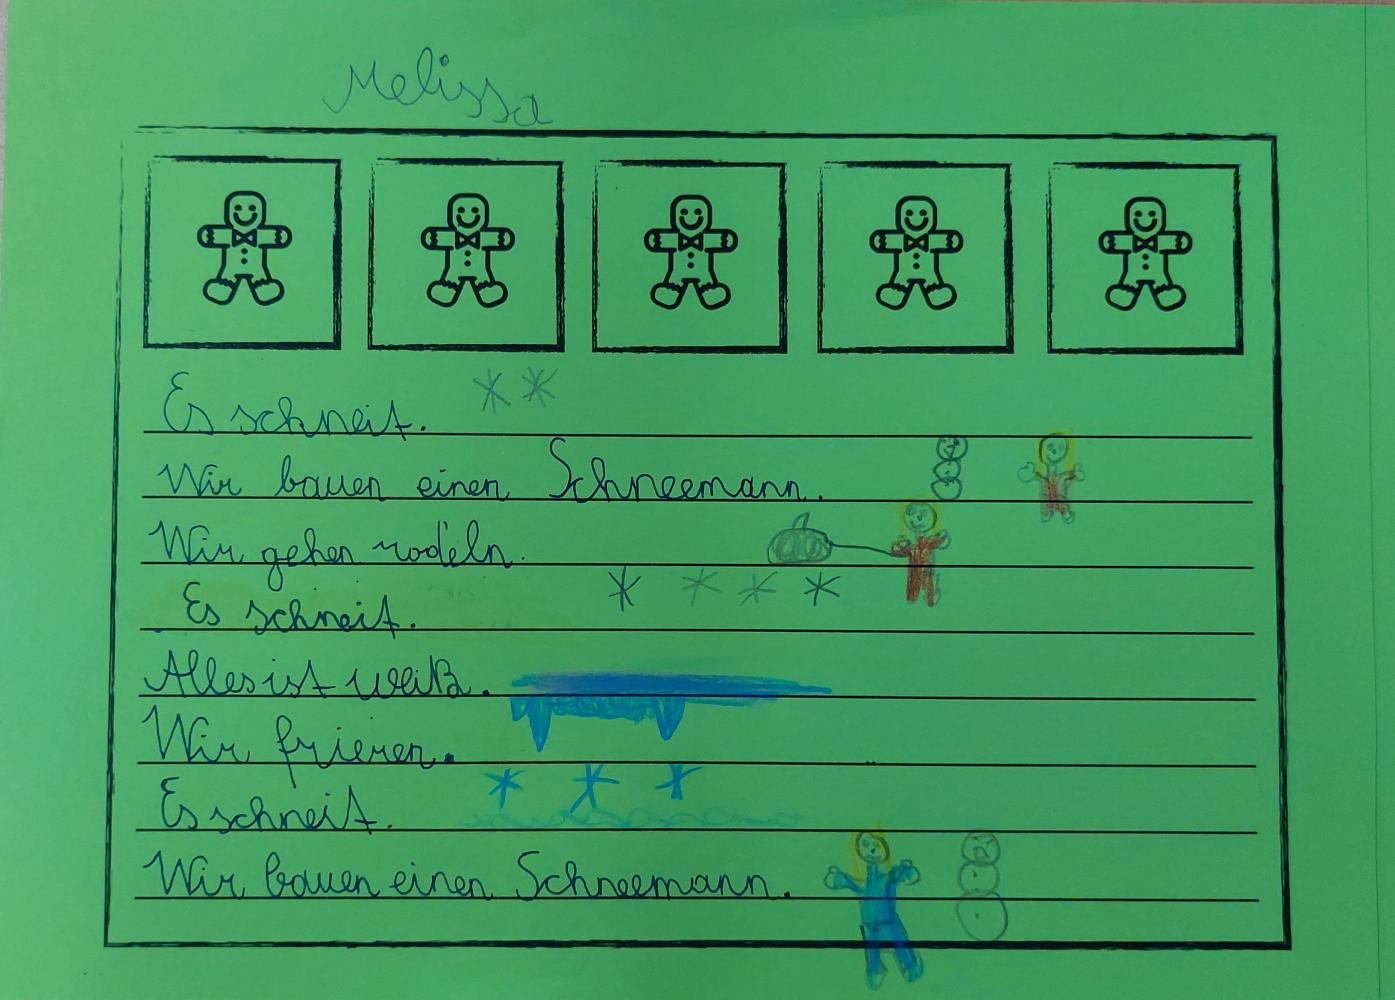 Melissa
Es schneit.
Wir bauen einen Schneemann.
Wir gehen rodeln.
Es schneit.
Alles ist weiß.
Wir frieren.
Es schneit.
Wir bauen einen Schneemann.